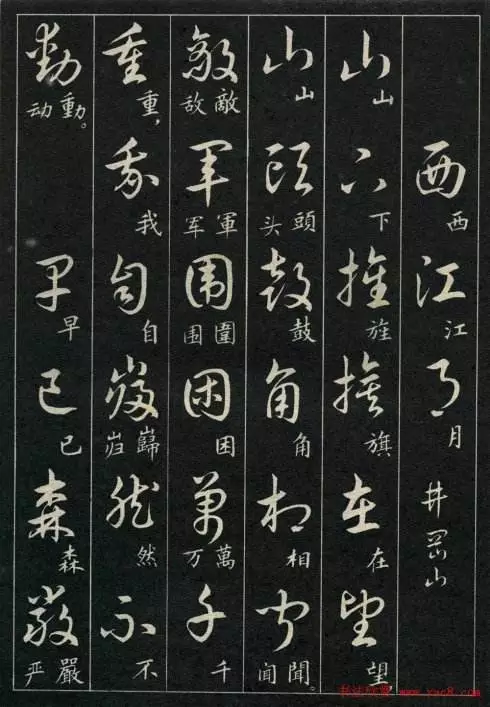 西江月 井岡山
西 江 月
山下旌旗在望
山 下 旌 旗 在 望
山頭鼓角相聞
山 頭头 鼓 角 相 聞闻。
敵軍圍困萬千
敵敌 軍军 圍围 困 萬万 千
重我自巋然不
重, 我 自 巋岿 然 不
動早已森嚴
動动。 早 已 森 嚴严
书法欣赏 www.yac8.com